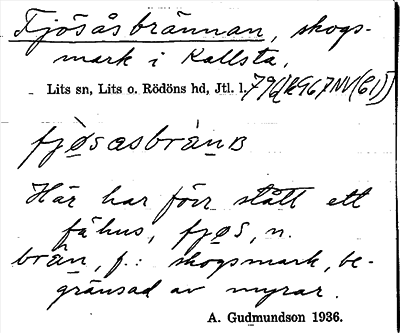 Fjösåsbrännan, skogs-
mark i Kallsta.
Lits sn, Lits o. Rödöns hd, Jtl. l.
fjøsåsbränB
Här har förr stått ett
fähus, fjøs, n.
brän, f.: skogsmark, be-
gränsad av myrar.
A. Gudmundson 1936.